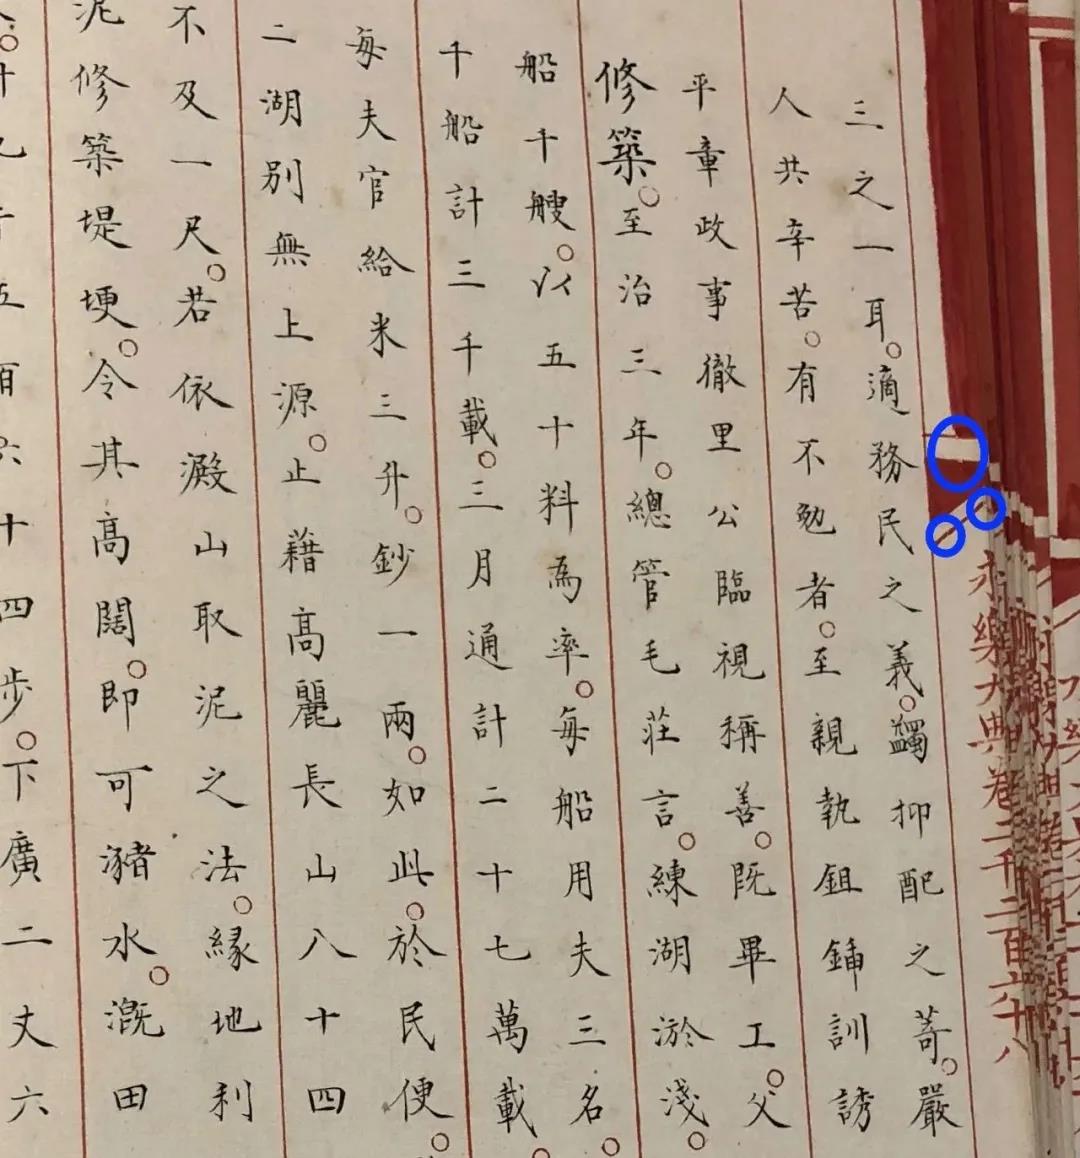 永樂大典卷二千二百六十八
三之一耳。適務民之義。蠲抑配之苛。嚴
人共辛苦。有不勉者。至親執鉏鍤訓誘
平章政事徹里公臨視稱善。既畢工。父
修築。至治三年。總管毛莊言。練湖淤淺。
船千艘。以五十料為率。每船用夫三名。
千船計三千載。三月通計二十七萬載。
每夫官給米三升。鈔一兩。如此。於民便。
二湖別無上源。止藉高麗長山八十四
不及一尺。若依澱山取泥之法。緣地利
泥修築堤埂。令其高闊。即可瀦水。溉田
計九千五百六十四步。下廣二丈六